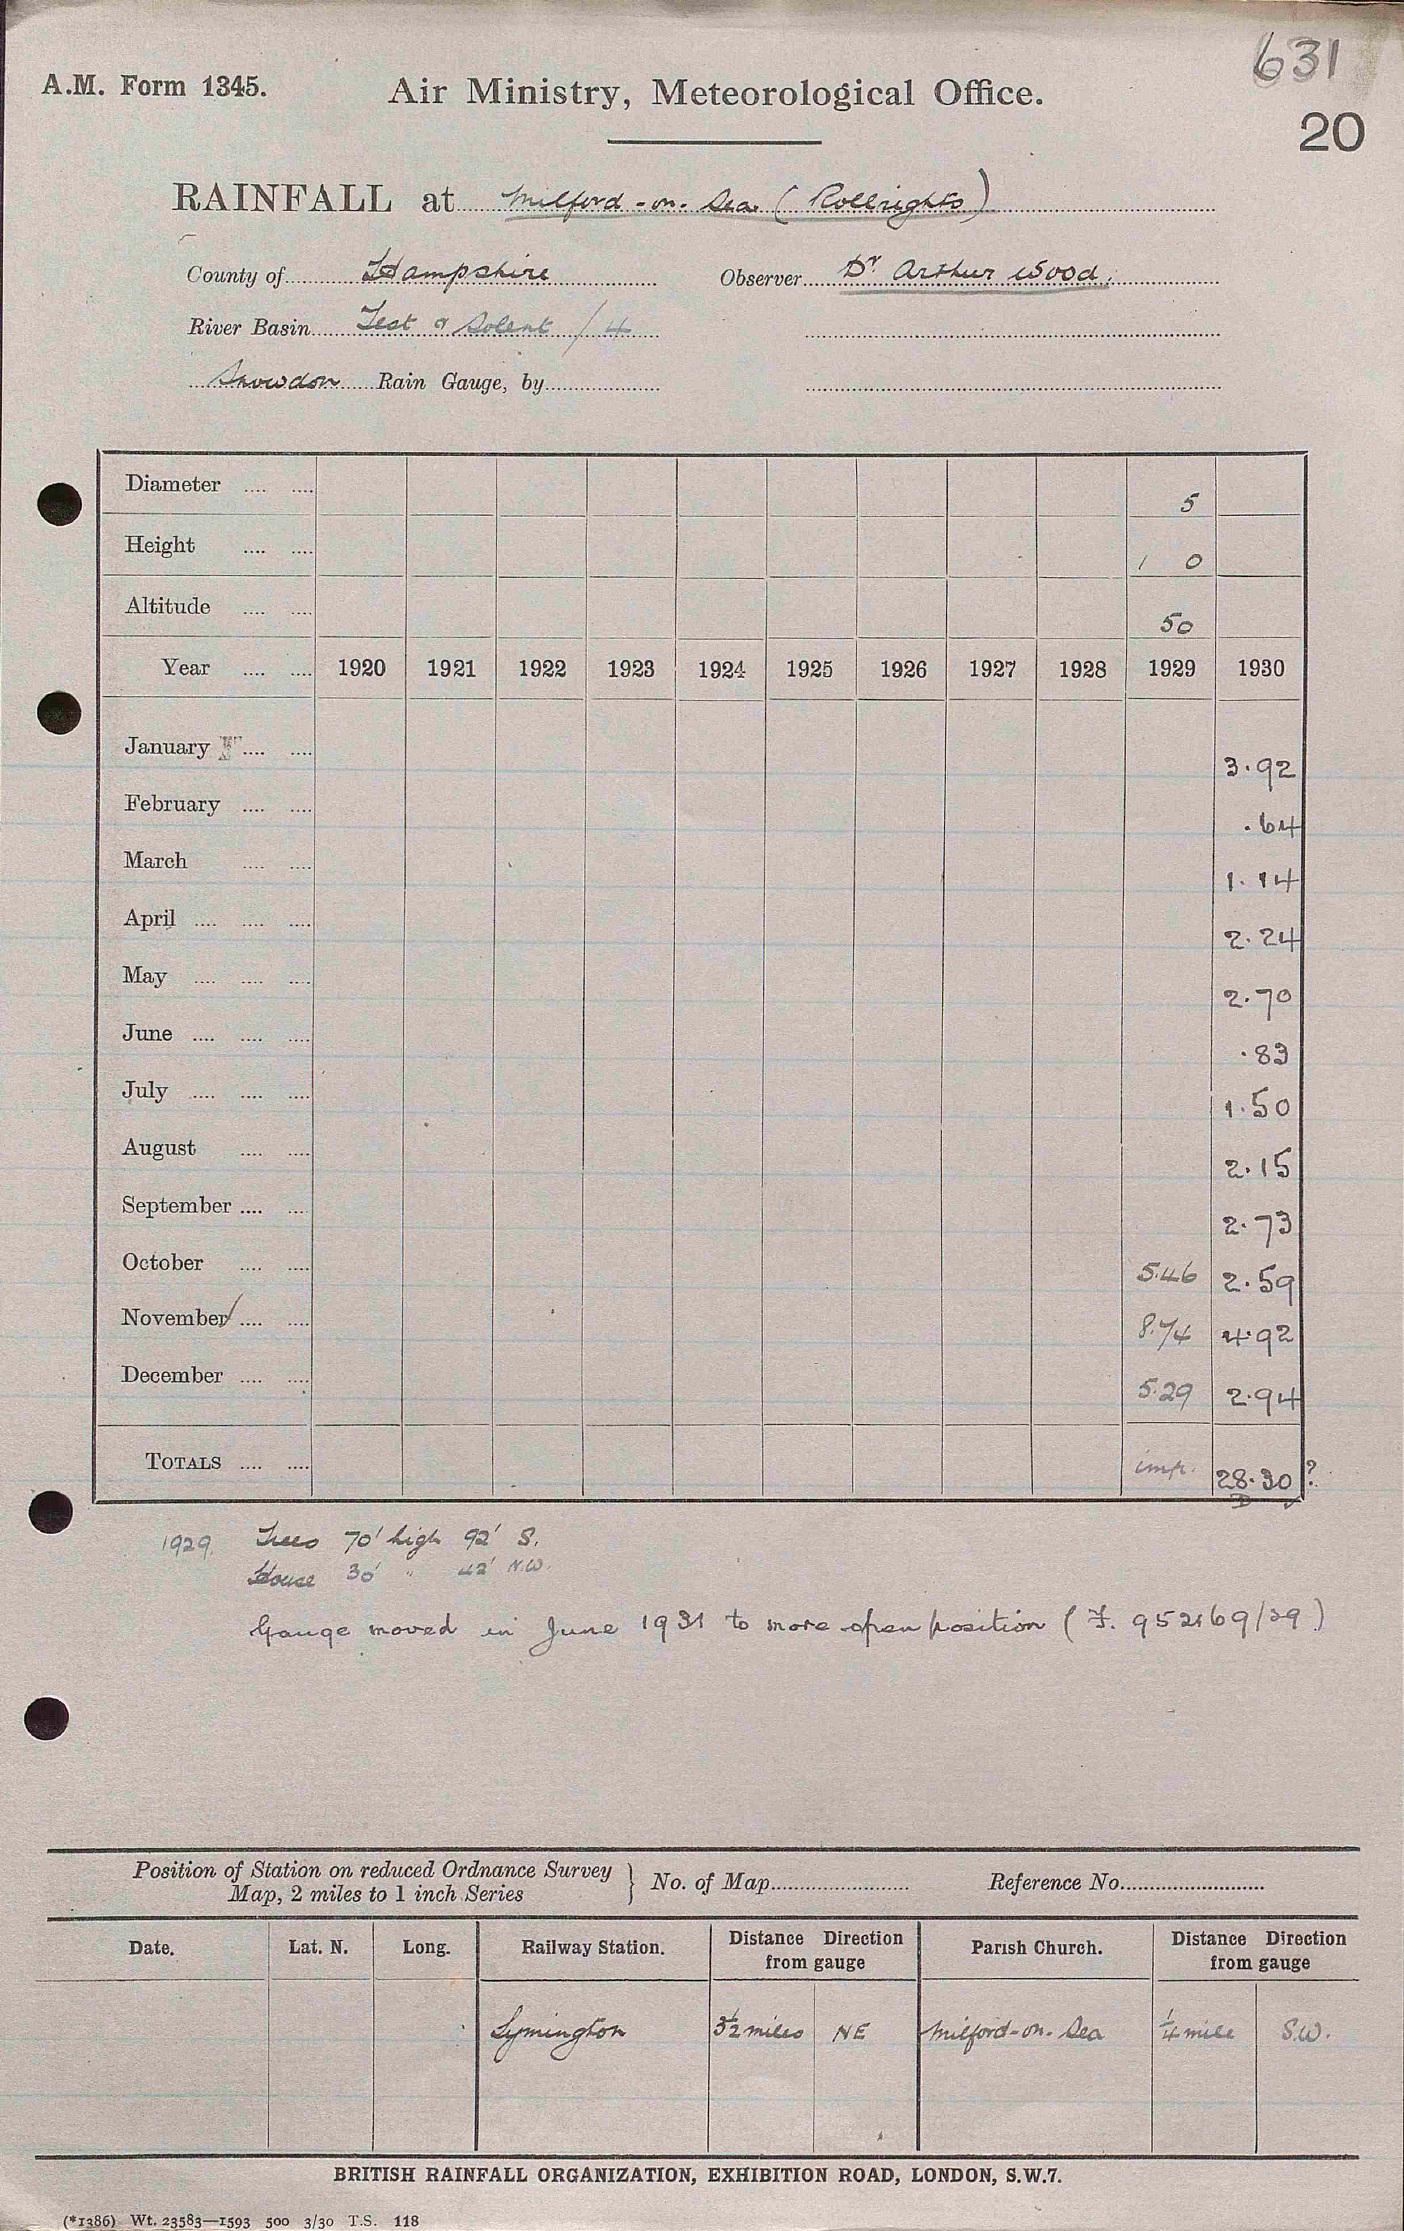 631
A.M. Form 1345.
Air Ministry, Meteorological Office.
20
RAINFALL at Milford-on-Sea (Rollrights)
County of Hampshire Observer Dr Arthur Wood.
River Basin Test & Solent / 4
Snowdon Rain Gauge, by
Diameter .... .... 5
Height .... .... 1 0
Altitude .... .... 50
Year .... .... 1920 1921 1922 1923 1924 1925 1926 1927 1928 1929 1930
January .... .... 3.92
February .... .... .64
March .... .... 1.14
April .... .... .... 2.24
May .... .... .... 2.70
June .... .... .... .83
July .... .... .... 1.50
August .... .... 2.15
September .... .... 2.73
October .... .... 5.46 2.59
November .... .... 8.74 4.92
December .... .... 5.29 2.94
TOTALS .... .... imp. 28.30 ?
1929. Trees 70' high 92' S.
House 30' " 42' N.W.
Gauge moved in June 1931 to more open position (F. 952169/29)
Position of Station on reduced Ordnance Survey Map, 2 miles to 1 inch Series } No. of Map Reference No.
Date. Lat. N. Long. Railway Station. Distance Direction from gauge Parish Church. Distance Direction from gauge
Lymington 3½ miles NE Milford-on-Sea ¼ mile S.W.
BRITISH RAINFALL ORGANIZATION, EXHIBITION ROAD, LONDON, S.W.7.
(*1386) Wt. 23583—1593 500 3/30 T.S. 118